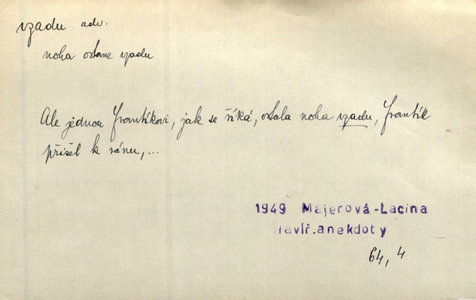 vzadu adv.
noha ostane vzadu
Ale jednou Frantíkovi, jak se říká, ostala noha vzadu, Frantík
přišel k ránu,...
1949 Majerová-Lacina
Havíř.anekdoty
64, 4